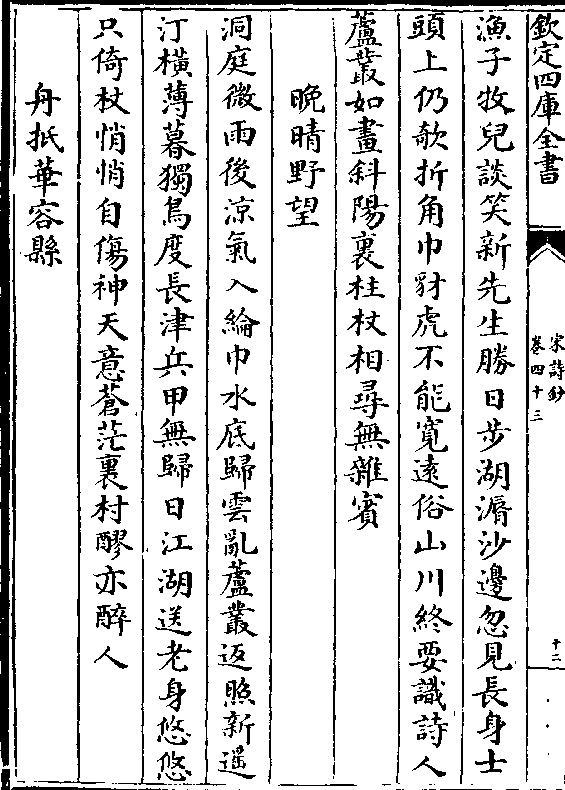 欽定四庫全書
宋詩鈔
卷四十三
十二
漁子牧兒談笑新先生勝日步湖漘沙邊忽見長身士
頭上仍欹折角巾豺虎不能寛遠俗山川終要識詩人
蘆叢如畫斜陽裏柱杖相尋無雜賓
晩晴野望
洞庭微雨後涼氣入綸巾水底歸雲亂蘆叢返照新遥
汀横薄暮獨鳥度長津兵甲無歸日江湖送老身悠悠
只倚杖悄悄自傷神天意蒼茫裏村醪亦醉人
舟扺華容縣